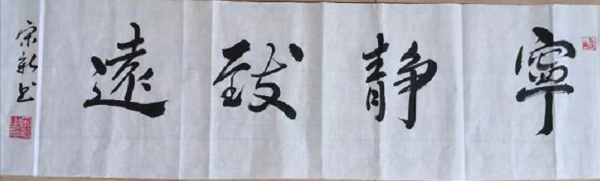 寧靜致遠
宗新书